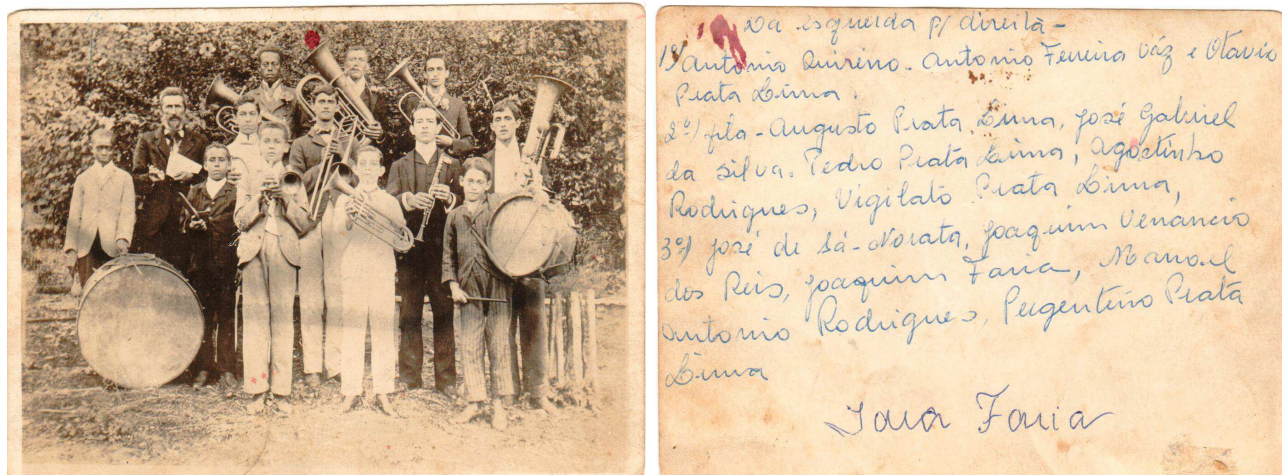 Da esquerda p/ direita -
1º) Antonio Quirino - Antonio Ferreira Váz e Otavio
Prata Lima.
2º) fila - Augusto Prata Lima, José Gabriel
da Silva. Pedro Prata Lima, Agostinho
Rodrigues, Vigilato Prata Lima,
3º) José de Sá - Norata, Joaquim Venancio
dos Reis, Joaquim Faria, Manoel
Antonio Rodrigues, Pergentino Prata
Lima
Iara Faria